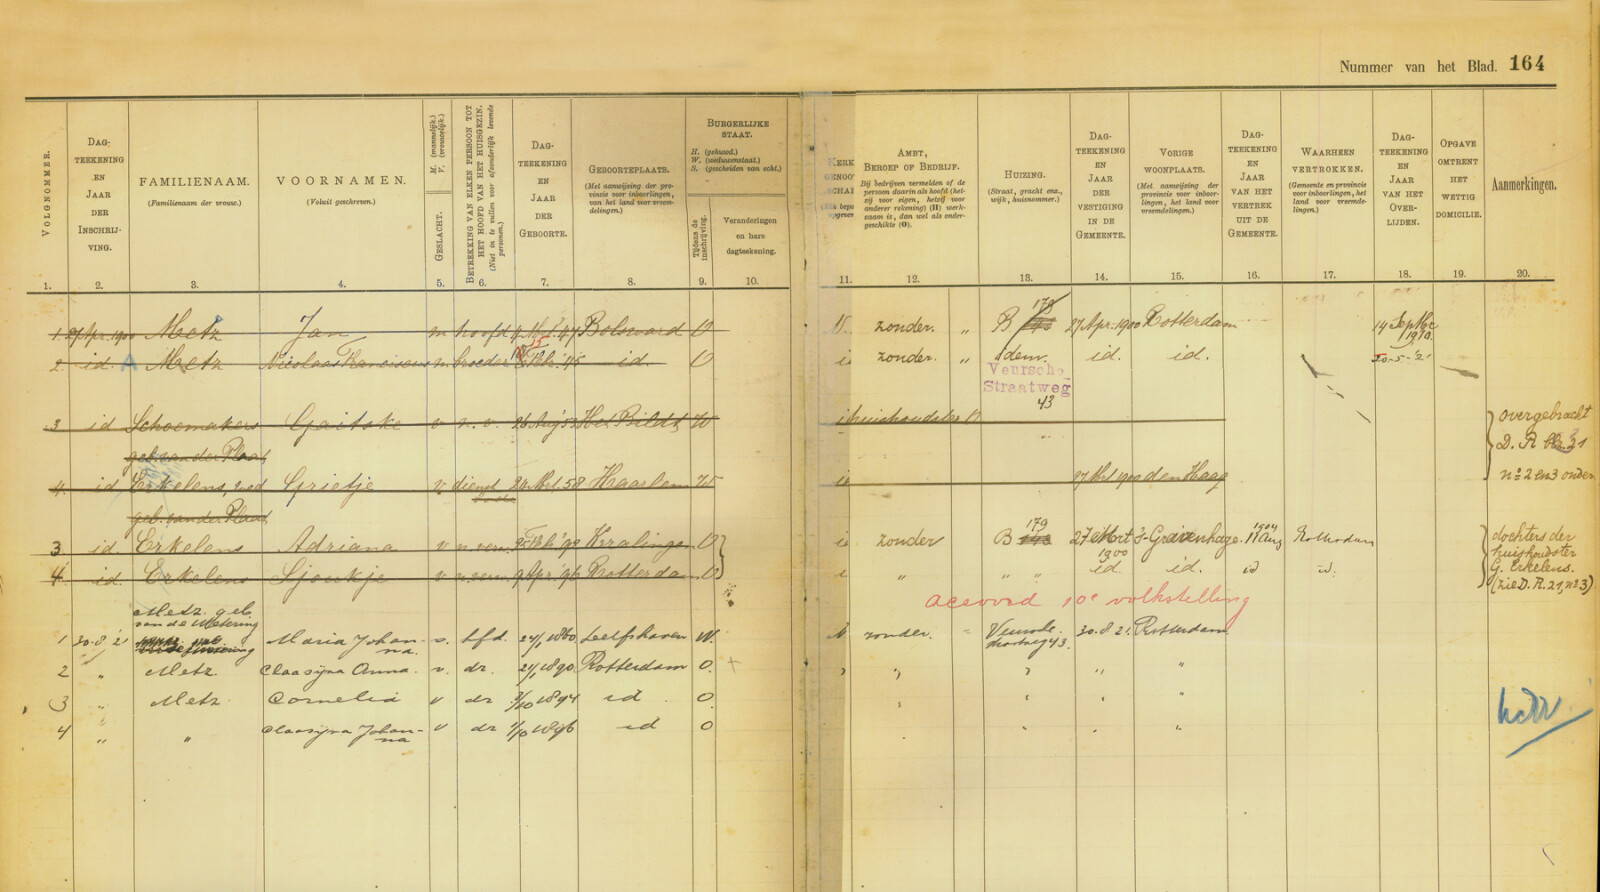 Nummer van het Blad. 164
VOLGNOMMER.
DAG-
TEEKENING
EN
JAAR
DER
INSCHRIJ-
VING.
FAMILIENAAM.
(Familienaam der vrouw.)
VOORNAMEN.
(Voluit geschreven.)
GESLACHT. M. (mannelijk.)
V. (vrouwelijk.)
BETREKKING VAN ELKEN PERSOON TOT
HET HOOFD VAN HET HUISGEZIN.
(Niet in te vullen voor afzonderlijk levende
personen.)
DAG-
TEEKENING
EN
JAAR
DER
GEBOORTE.
GEBOORTEPLAATS.
(Met aanwijzing der pro-
vincie voor inboorlingen,
van het land voor vreem-
delingen.)
BURGERLIJKE
STAAT.
H. (gehuwd.)
W. (weduwenstaat.)
S. (gescheiden van echt.)
Tijdens de
inschrijving.
Veranderingen
en hare
dagteekening.
KERK
GENOO
SCHAP
AMBT,
BEROEP OF BEDRIJF.
Bij bedrijven vermelden of de
persoon daarin als hoofd (het-
zij voor eigen, hetzij voor
anderer rekening) (H) werk-
zaam is, dan wel als onder-
geschikte (O).
HUIZING.
(Straat, gracht enz.,
wijk, huisnommer.)
DAG-
TEEKENING
EN
JAAR
DER
VESTIGING
IN DE
GEMEENTE.
VORIGE
WOONPLAATS.
(Met aanwijzing der
provincie voor inboor-
lingen, het land voor
vreemdelingen.)
DAG-
TEEKENING
EN
JAAR
VAN HET
VERTREK
UIT DE
GEMEENTE.
WAARHEEN
VERTROKKEN.
(Gemeente en provincie
voor inboorlingen, het
land voor vreemde-
lingen.)
DAG-
TEEKENING
EN
JAAR
VAN HET
OVER-
LIJDEN.
OPGAVE
OMTRENT
HET
WETTIG
DOMICILIE.
Aanmerkingen.
1. 2. 3. 4. 5. 6. 7. 8. 9. 10. 11. 12. 13. 14. 15. 16. 17. 18. 19. 20.
179
1. 27 Apr. 1900 Metz Jan m hoofd 47 Bolsward O N. zonder. " B 27 Apr. 1900 Rotterdam 14 Sept
1910.
2. id. A Metz Nicolaas Franciscus m broeder 45 id. O id zonder. " idem. id. id. 20-5-'21
Veursche
Straatweg
43
3 id Schoemakers Gaitske v n. v. 26 Aug '53 Het Bildt W id huishoudster O
geb. van der Plaat
overgebracht
D. R blz 21
no 2 en 3 onder
4. id Erkelens, wed Grietje v. dienst 58 Haarlem W id 1900 den Haag
geb. van der Plaat
179
3 id Erkelens Adriana v Kralingen O id zonder B 27 Mrt 's-Gravenhage. 1904
1900 11 Aug Rotterdam
4 id. Erkelens Sjoukje v 9 Apr. '96 Rotterdam O " " " id. id. id id.
dochters der
huishoudster
G. Erkelens.
(zie D. R. 21, no 3)
accoord 10e volkstelling
Metz geb.
van de Wetering
1 30-8-'21 Maria Johan-
na. v. hfd. 24/1 1860 Delfshaven W. N zonder. " Veursche
straatweg 43. 30.8.21. Rotterdam
2 " Metz. Claasijna Anna. v. dr. 21/1 1890 Rotterdam O. + " " " " "
3 " Metz Cornelia v dr 3/10 1894 id O " " " "
4 " " Claasijna Johan-
na v dr 1/10 1896 id O " " "